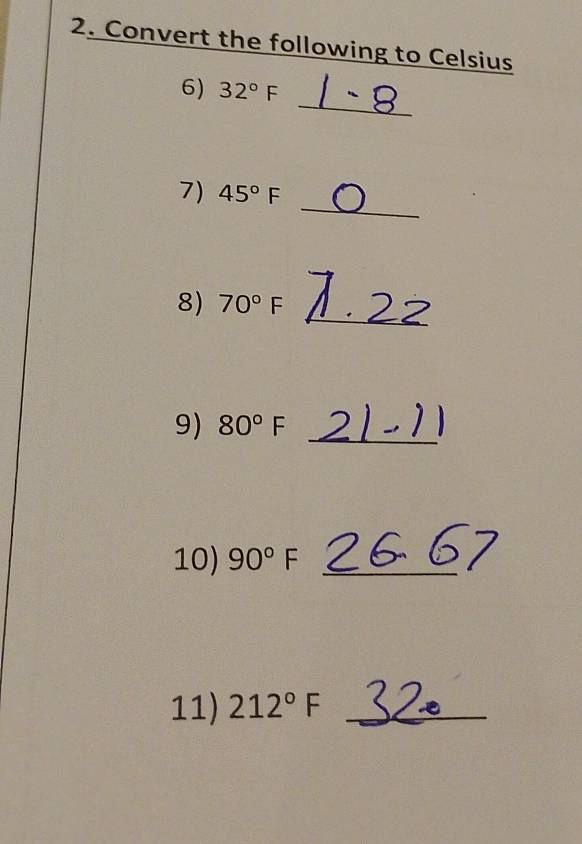 2. Convert the following to Celsius
6) 32° F 1.8
7) 45° F 0
8) 70° F 7.22
9) 80° F 21.11
10) 90° F 26.67
11) 212° F 32.